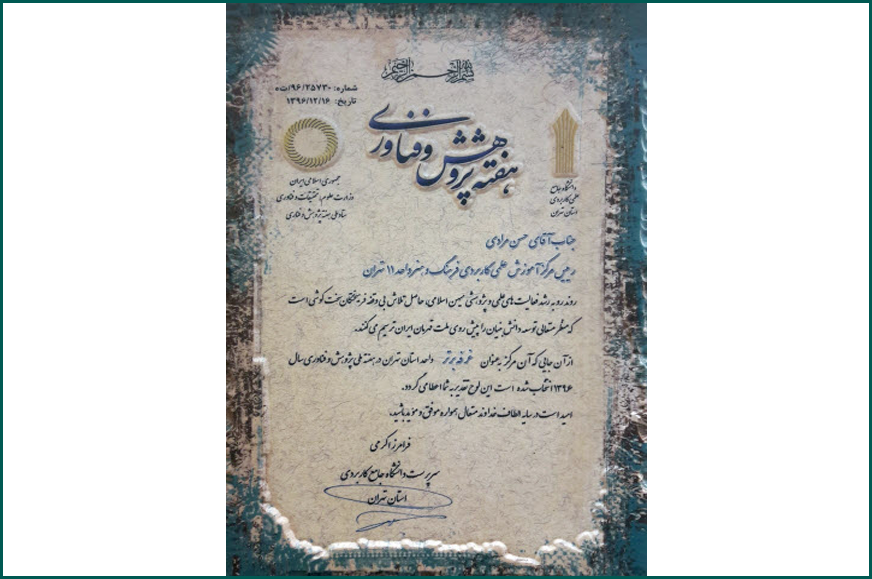 بسم الله الرحمن الرحیم
شماره: ۹۶/۲۵۷۳۰/ت۵
تاریخ: ۱۳۹۶/۱۲/۱۶
هفته پژوهش و فناوری
جمهوری اسلامی ایران
وزارت علوم، تحقیقات و فناوری
ستاد ملی هفته پژوهش و فناوری
دانشگاه جامع
علمی کاربردی
استان تهران
جناب آقای حسن مرادی
رییس مرکز آموزش علمی کاربردی فرهنگ و هنر واحد ۱۱ تهران
روند رو به رشد فعالیت های علمی و پژوهشی میهن اسلامی، حاصل تلاش بی وقفه فرهیختگان سخت کوشی است
که منظر متعالی توسعه دانش بنیان را پیش روی ملت قهرمان ایران ترسیم می کنند.
از آن جایی که آن مرکز به عنوان غرفه برتر واحد استان تهران در هفته ملی پژوهش و فناوری سال
۱۳۹۶ انتخاب شده است این لوح تقدیر به شما اعطا می گردد.
امید است در سایه الطاف خداوند متعال همواره موفق و موید باشید.
فرامرز اکرمی
سرپرست دانشگاه جامع کاربردی
استان تهران